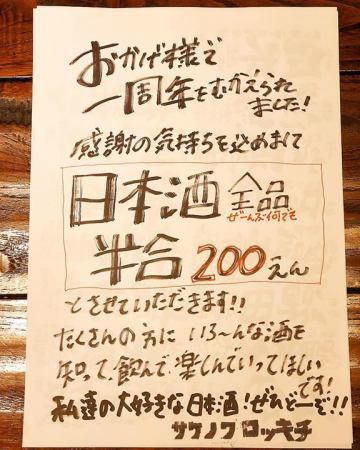 おかげ様で
一周年をむかえられ
ました!
感謝の気持ちを込めまして
日本酒 全品
ぜーんぶ何でも
半合 200えん
とさせていただきます!!
たくさんの方に いろ〜んな酒を
知って、飲んで、楽しんでいってほしい
です!
私達の大好きな日本酒!ぜひどーぞ!!
サケノワ ロッキチ